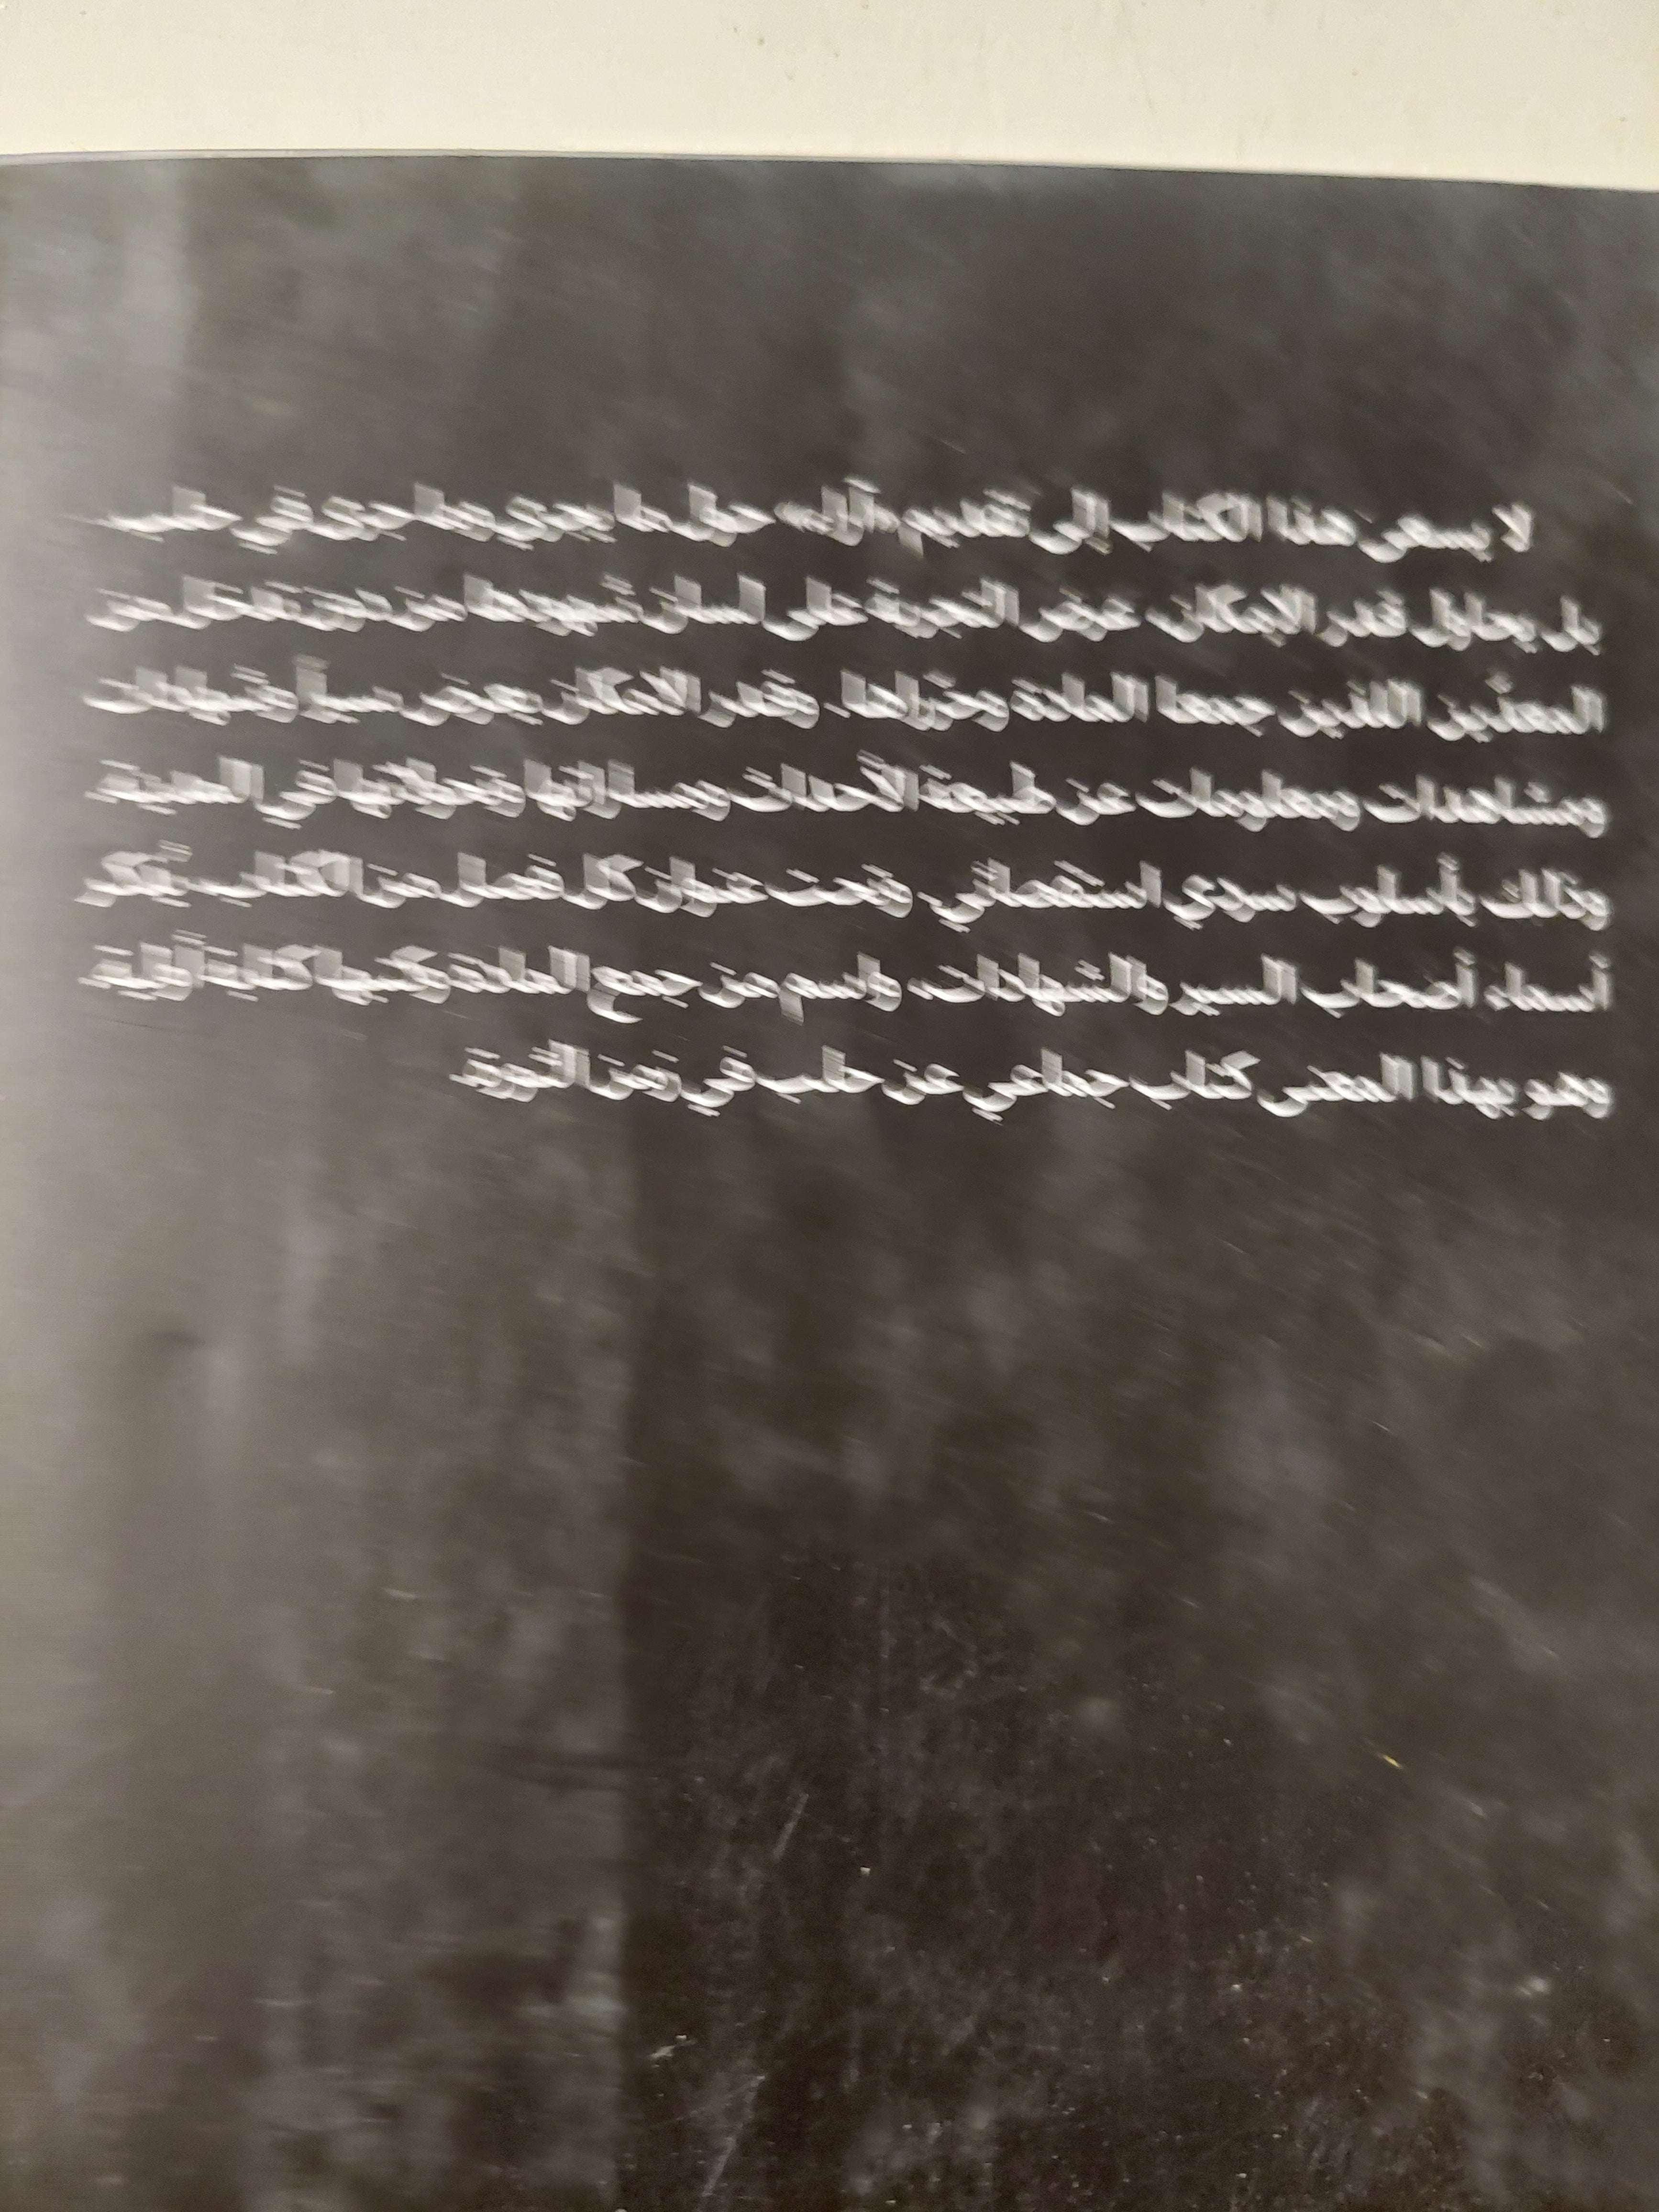 لا يسعى هذا الكتاب إلى تقديم «آراء» حول ما يجري وما جرى في حلب
بل يحاول قدر الإمكان، عرض التجربة على لسان شهودها من دون تدخل من
المعدّين اللذين جمعا المادة وحرراها. وقدر الامكان يعرض سيراً وشهادات
ومشاهدات ومعلومات عن طبيعة الأحداث ومساراتها وتحولاتها في المدينة،
وذلك بأسلوب سردي استقصائي. وتحت عنوان كل فصل من الكتاب يُذكر
أسماء أصحاب السير والشهادات، واسم من جمع المادة وكتبها كتابة أولية.
وهو بهذا المعنى كتاب جماعي عن حلب في زمن الثورة.